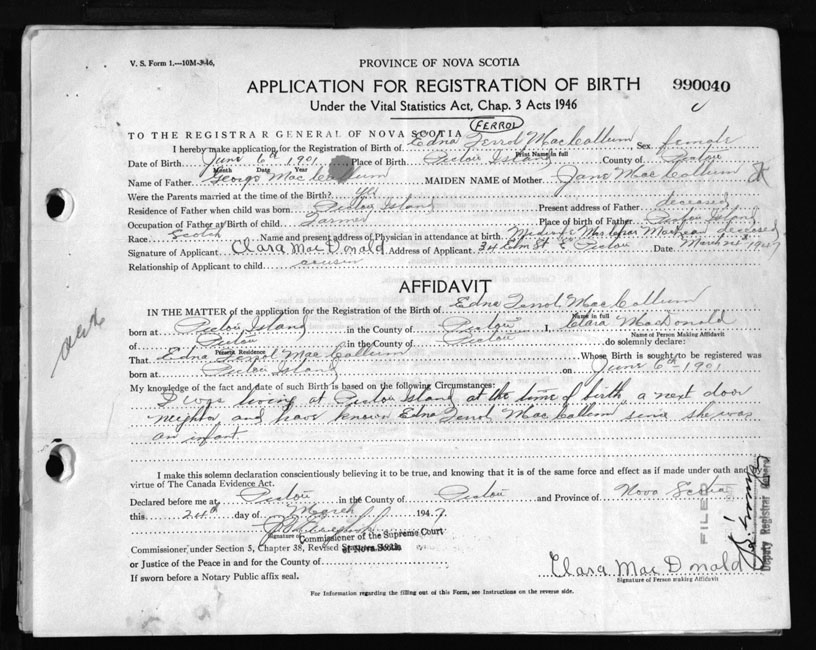 V. S. Form 1.—10M-3-46.
PROVINCE OF NOVA SCOTIA
APPLICATION FOR REGISTRATION OF BIRTH 990040
Under the Vital Statistics Act, Chap. 3 Acts 1946
FERROL
TO THE REGISTRAR GENERAL OF NOVA SCOTIA
I hereby make application for the Registration of Birth of Edna Ferrol MacCallum Sex female
Print Name in full
Date of Birth June 6th 1901 Place of Birth Pictou Island County of Pictou
Month Date Year
Name of Father George MacCallum MAIDEN NAME of Mother Jane MacCallum
Were the Parents married at the time of Birth? Yes
Residence of Father when child was born Pictou Island Present address of Father deceased
Occupation of Father at Birth of child Farmer Place of Birth of Father Pictou Island
Race Scotch Name and present address of Physician in attendance at birth deceased
Signature of Applicant Clara MacDonald Address of Applicant 34 Elm St Pictou Date March 24th 1947
Relationship of Applicant to child cousin
AFFIDAVIT
IN THE MATTER of the application for the Registration of the Birth of Edna Ferrol MacCallum
Name in full
born at Pictou Island in the County of Pictou I, Clara MacDonald
Name of Person Making Affidavit
of Pictou in the County of Pictou do solemnly declare:
Present Residence
That Edna Ferrol MacCallum Whose Birth is sought to be registered was
born at Pictou Island on June 6th 1901
My knowledge of the fact and date of such Birth is based on the following Circumstances:
I was living at Pictou Island at the time of birth, a next door
neighbor and have known Edna Ferrol MacCallum since she was
an infant
I make this solemn declaration conscientiously believing it to be true, and knowing that it is of the same force and effect as if made under oath and by
virtue of The Canada Evidence Act.
Declared before me at Pictou in the County of Pictou and Province of Nova Scotia
this 24th day of March 1947
Signature of Commissioner of the Supreme Court
of Nova Scotia
Commissioner under Section 5, Chapter 38, Revised Statutes 1923
or Justice of the Peace in and for the County of
If sworn before a Notary Public affix seal.
Clara MacDonald
Signature of Person Making Affidavit
For Information regarding the filling out of this Form, see Instructions on the reverse side.
FILED
Deputy Registrar General